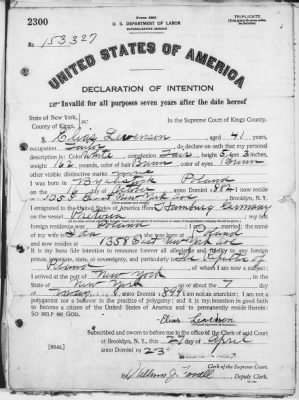 2300
Form 2203
U. S. DEPARTMENT OF LABOR
NATURALIZATION SERVICE
TRIPLICATE
No. 153,327
UNITED STATES OF AMERICA
DECLARATION OF INTENTION
Invalid for all purposes seven years after the date hereof
State of New York,
County of Kings, ss:
In the Supreme Court of Kings County.
I, Elias Levenson aged 41 years,
occupation do declare on oath that my personal
description is: Color White, complexion Fair, height 5 feet 3 inches,
weight 162 pounds, color of hair Brown, color of eyes Brown
other visible distinctive marks none
I was born in Poland
on the day of October, anno Domini 1881; I now reside
at 1358 East New York Ave, Brooklyn, N. Y.
I emigrated to the United States of America from Hamburg Germany
on the vessel; my last
foreign residence was Poland; I am married; the name
of my wife is; she was born at Poland
and now resides at 1358 East New York Ave
It is my bona fide intention to renounce forever all allegiance and fidelity to any foreign
prince, potentate, state, or sovereignty, and particularly to The Republic of
Poland, of whom I am now a subject;
I arrived at the port of New York, in the
State of New York, on or about the 7 day
of May, anno Domini; I am not an anarchist; I am not a
polygamist nor a believer in the practice of polygamy; and it is my intention in good faith
to become a citizen of the United States of America and to permanently reside therein:
SO HELP ME GOD.
Elias Levenson
Subscribed and sworn to before me in the office of the Clerk of said Court
[SEAL]
at Brooklyn, N. Y., this 27 day of April
anno Domini 1923
Clerk of the Supreme Court.
By William J., Deputy Clerk.